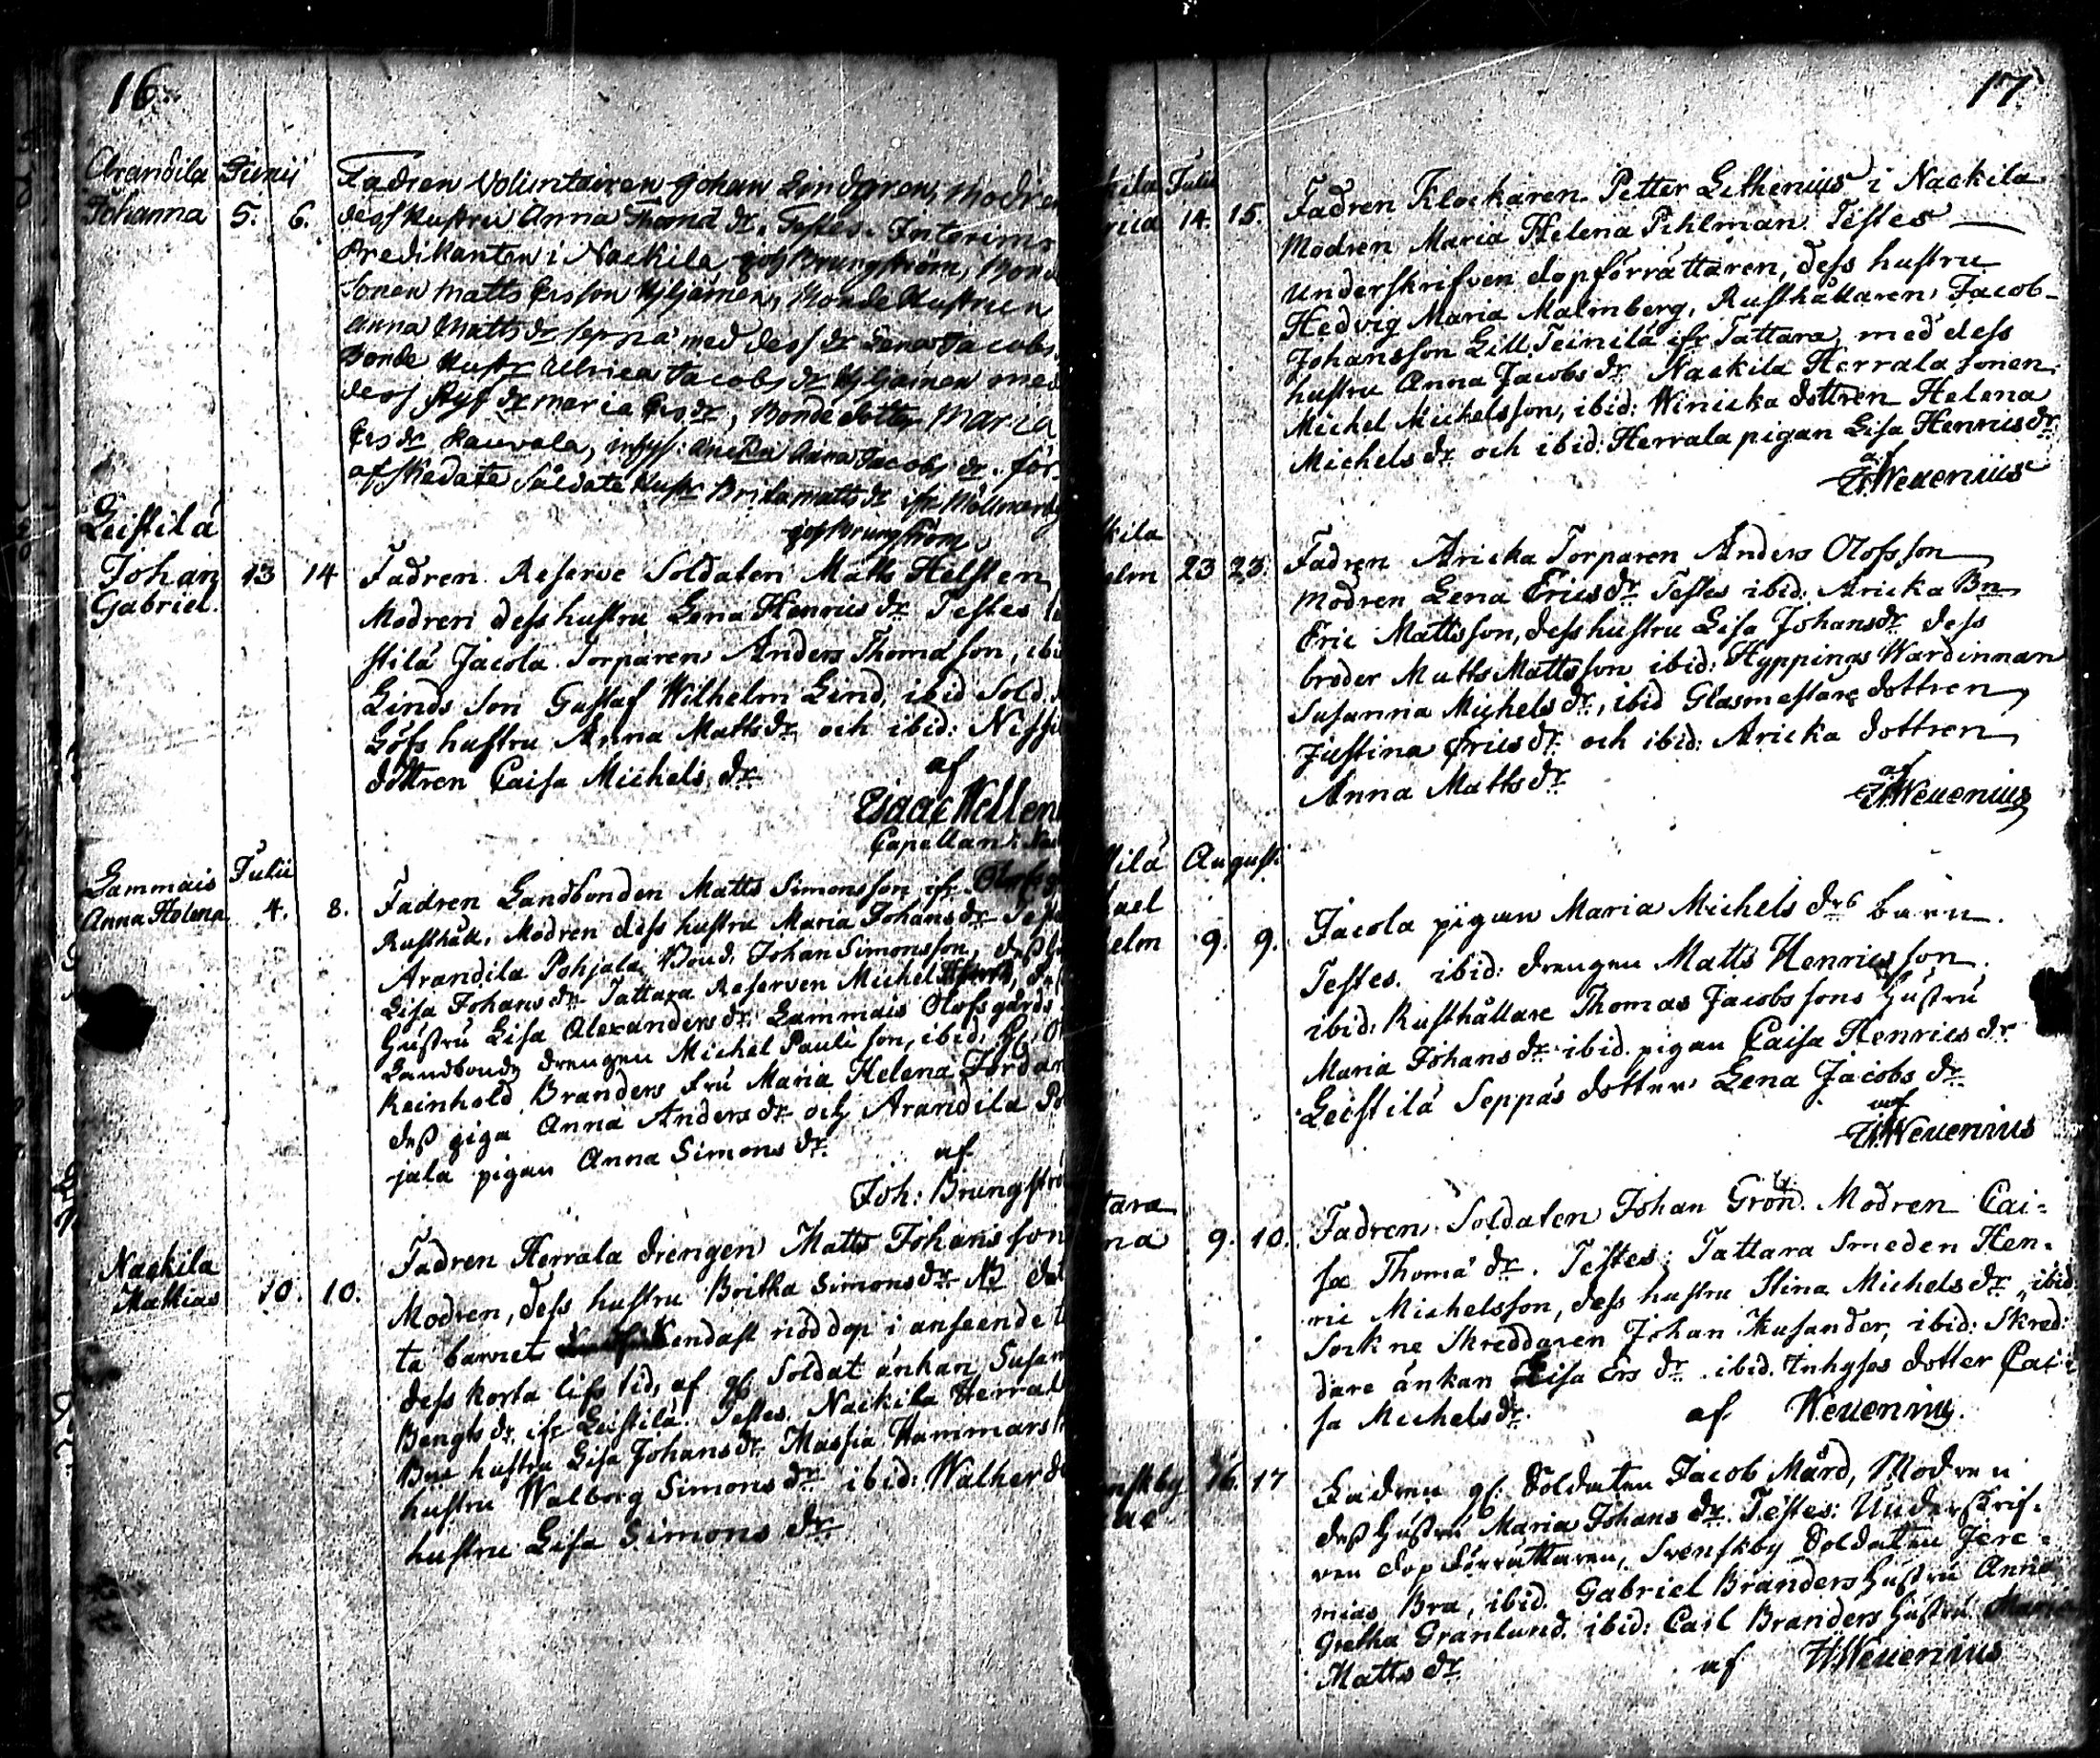 16.
Arandila Junii
Johanna 5. 6.
Fadren Volunteiren Johan Lindgren, Modren
dess Hustru Anna Thoma dr. Testes. Interims
Predikanten i Nackila Joh Brungström, Bonde
Sonen Matts Ersson Hyljainen, Bonde Hustrun
Anna Matts dr Seppä med dess dr Lena Jacobs
Bonde Hustr Ulrica Jacobs dr Hyljainen med
dess Styf dr Maria Ers dr, Bonde dotter Maria
Ers dr Kauvola, inhys: Anna Jacobs dr. för
afskedate Soldate Hustr Brita Matts dr ifr
Joh Brungström.
Leistilä
Johan 13 14
Gabriel.
Fadren Reserve Soldaten Matts Helsten
Modren dess hustru Lena Henrics dr Testes
stilä Jacola Torparen Anders Thomasson, ibid
Linds Son Gustaf Wilhelm Lind, ibid Sold.
Löfs hustru Anna Matts dr och ibid:
dottren Caisa Michels dr
af
Isaac Wellen
Capellan i
Lammais Julii
Anna Helena 4. 8.
Fadren Landbonden Matts Simonsson ifr
Rusthåll, Modren dess hustru Maria Johans dr
Arandila Pohjala Bond. Johan Simonsson,
Lisa Johans dr Tattara Reserven Michel
hustru Lisa Alexanders dr Lammais Olofsgårds
Landbonde drengen Michel Pauli son, ibid.
Reinhold Branders fru Maria Helena
dess piga Anna Anders dr och Arandila Po
jala pigan Anna Simons dr.
af
Joh: Brungströ
Nackila
Mathias 10. 10.
Fadren Herrala drengen Matts Johans son
Modren, dess hustru Britha Simons dr NB det
ta barnet endast nöddop i anseende t
dess korta lifs tid, af gl Soldat änkan Susan
Bengts dr ifr Leistilä. Testes Nackila Herral
Bne hustru Lisa Johans dr Massia Hammars
hustru Walborg Simons dr ibid: Walher
hustru Lisa Simons dr
17.
kila Julii
rica 14. 15.
Fadren Klockaren Petter Lithenius i Nackila
Modren Maria Helena Pihlman. Testes
Underskrifven dopförrättaren, dess hustru
Hedvig Maria Malmberg, Rusthållaren Jacob
Johansson Lill Teinilä ifr Tattara, med dess
hustru Anna Jacobs dr Nackila Herrala sonen
Michel Michelsson, ibid: Winicka dottren Helena
Michels dr och ibid: Herrala pigan Lisa Henrics dr
af
Wevenius
kila
elm 23 23.
Fadren Aricka Torparen Anders Olofsson
Modren Lena Erics dr Testes ibid: Aricka Bn
Eric Mattsson, dess hustru Lisa Johans dr dess
broder Matts Mattsson ibid: Hyppings Wärdinnan
Susanna Michels dr, ibid Glasmestare dottren
Justina Erics dr och ibid: Aricka dottren
Anna Matts dr
af
Wevenius
tilä Augusti
ael
elm 9. 9.
Jacola pigan Maria Michels drs barn.
Testes. ibid: drengen Matts Henricsson.
ibid: Rusthållare Thomas Jacobssons hustru
Maria Johans dr ibid. pigan Caisa Henrics dr
Leistilä Seppäs dotter Lena Jacobs dr
af
Wevenius
tara
na 9. 10.
Fadren Soldaten Johan Grön. Modren Cai=
sa Thoma dr. Testes: Tattara Smeden Hen.
ric Michelsson, dess hustru Stina Michels dr, ibid
Sockne Skreddaren Johan Kusander, ibid: Skred:
dare änkan Lisa Ers dr ibid. Inhyses dotter Cai
sa Michels dr.
af Wevenius.
nskby 16. 17
Fadren gl. Soldaten Jacob Mård, Modren
dess hustru Maria Johans dr. Testes: Underskrif.
ven dopförrättaren, Svenskby Soldaten Jere=
mias Bra, ibid. Gabriel Branders hustru Anna
Gretha Granlund. ibid: Carl Branders hustru Maria
Matts dr
af Wevenius